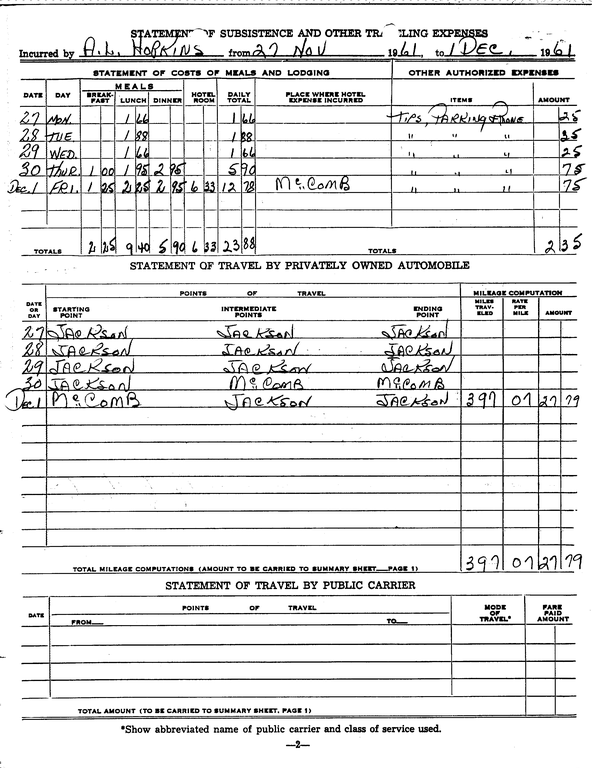 STATEMENT OF SUBSISTENCE AND OTHER TRAVELING EXPENSES
Incurred by A.L. HOPKINS from 27 NOV 1961, to 1 DEC, 1961
STATEMENT OF COSTS OF MEALS AND LODGING OTHER AUTHORIZED EXPENSES
DATE DAY MEALS BREAK-FAST LUNCH DINNER HOTEL ROOM DAILY TOTAL PLACE WHERE HOTEL EXPENSE INCURRED ITEMS AMOUNT
27 MON. 1 66 1 66 TIPS, PARKING & PHONE 25
28 TUE. 1 88 1 88 " " " 25
29 WED. 1 66 1 66 " " " 25
30 THUR. 1 00 1 95 2 95 5 90 " " " 75
Dec. 1 FRI. 1 25 2 25 2 95 6 33 12 78 McComB " " " 75
TOTALS 2 25 9 40 5 90 6 33 23 88 TOTALS 2 35
STATEMENT OF TRAVEL BY PRIVATELY OWNED AUTOMOBILE
POINTS OF TRAVEL MILEAGE COMPUTATION
DATE OR DAY STARTING POINT INTERMEDIATE POINTS ENDING POINT MILES TRAV-ELED RATE PER MILE AMOUNT
27 JACKSON JACKSON JACKSON
28 JACKSON JACKSON JACKSON
29 JACKSON JACKSON JACKSON
30 JACKSON McComB McComB
Dec. 1 McComB JACKSON JACKSON 397 07 27 79
TOTAL MILEAGE COMPUTATIONS (AMOUNT TO BE CARRIED TO SUMMARY SHEET—PAGE 1) 397 07 27 79
STATEMENT OF TRAVEL BY PUBLIC CARRIER
DATE POINTS OF TRAVEL MODE OF TRAVEL* FARE PAID AMOUNT
FROM— TO—
TOTAL AMOUNT (TO BE CARRIED TO SUMMARY SHEET, PAGE 1)
*Show abbreviated name of public carrier and class of service used.
—2—